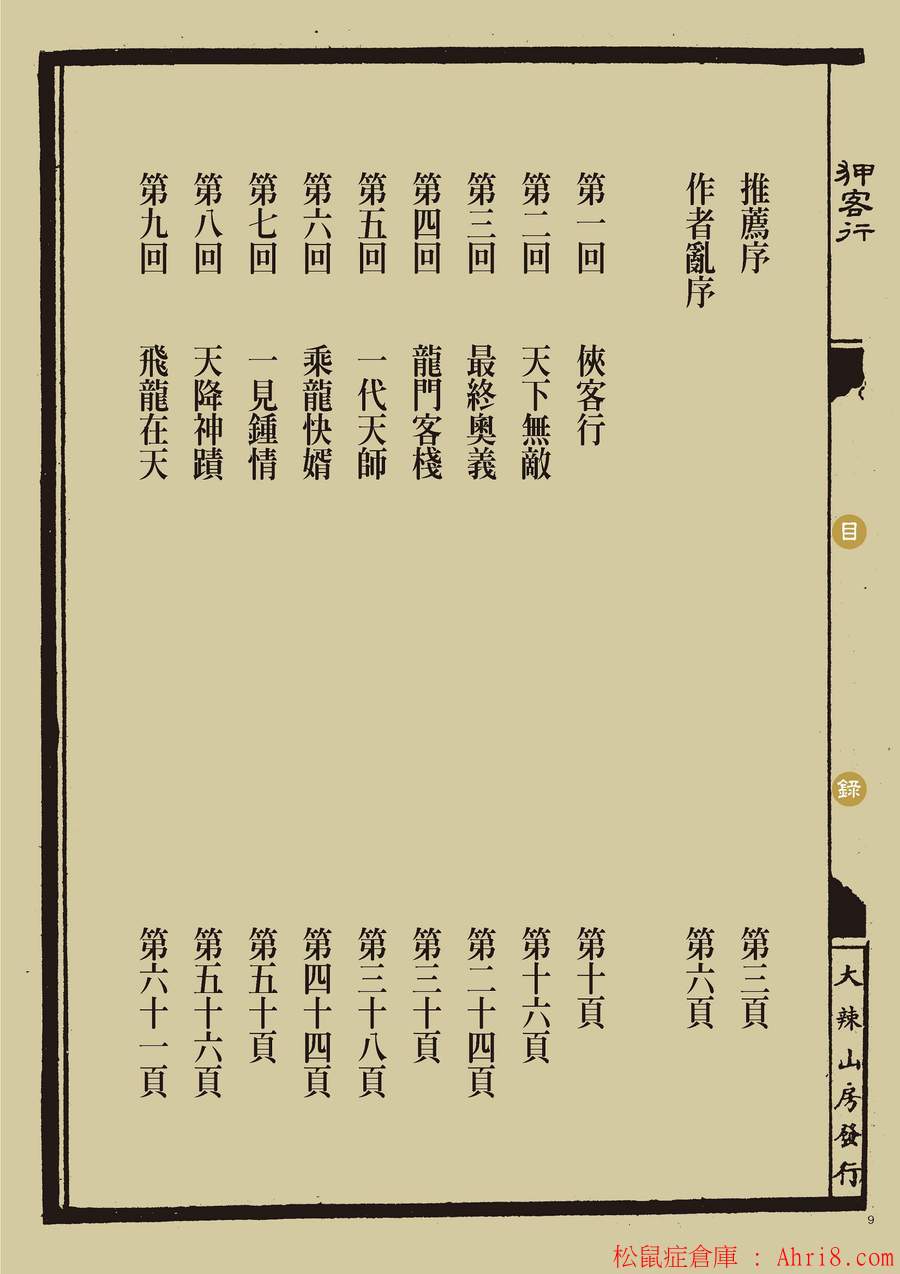 狎客行
目
錄
大辣山房發行
推薦序 第三頁
作者亂序 第六頁
第一回 俠客行 第十頁
第二回 天下無敵 第十六頁
第三回 最終奧義 第二十四頁
第四回 龍門客棧 第三十頁
第五回 一代天師 第三十八頁
第六回 乘龍快婿 第四十四頁
第七回 一見鍾情 第五十頁
第八回 天降神蹟 第五十六頁
第九回 飛龍在天 第六十一頁
9
松鼠症倉庫 : Ahri8.com